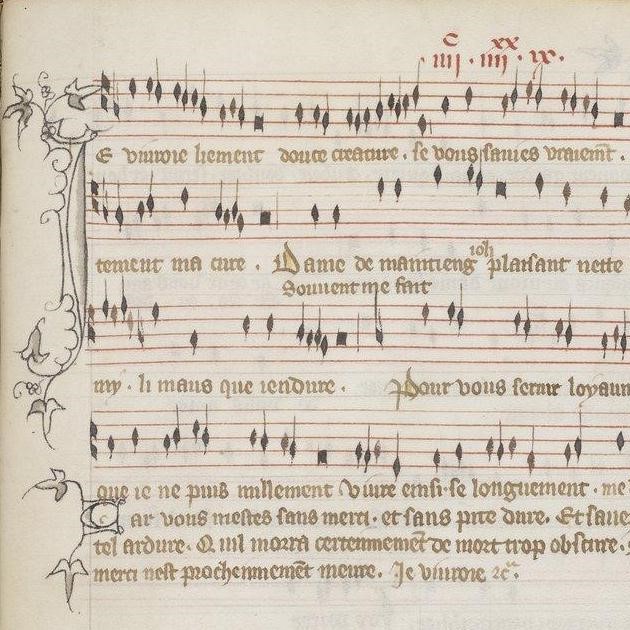 c xx
.iiij. iiij. ix.
E viuroie liement douce creature. se vous sauies vraiemt.
tement ma cure. Dame de maintieng ioli plaisant nette
Souuent me fait
my. li maus que iendure. Pour vous seruir loyaum
que ie ne puis nullement viure ensi se longuement. me
Car vous mestes sans merci. et sans pite dure. Et saue
tel ardure. Quil morra certennement de mort trop obscure.
merci nest prochennement meure. Je viuroie &c.